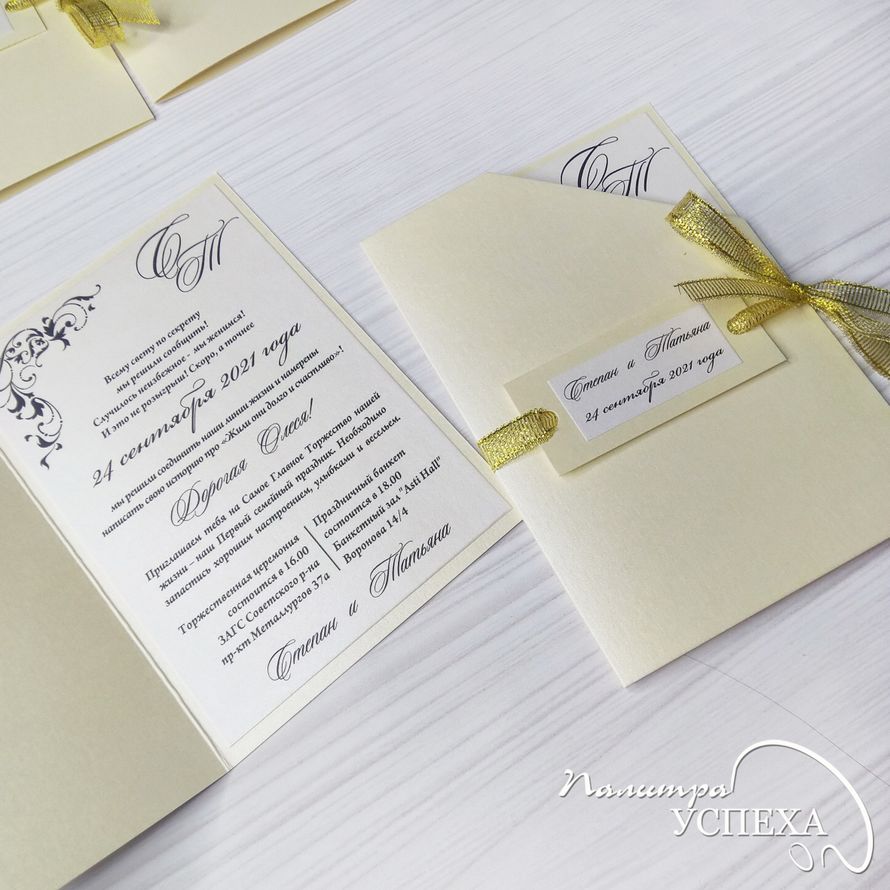 СТ
Всему свету по секрету
мы решили сообщить!
Случилось неизбежное - мы женимся!
И это не розыгрыш! Скоро, а точнее
24 сентября 2021 года
мы решили соединить наши линии жизни и намерены
написать свою историю про «Жили они долго и счастливо»!
Дорогая Олеся!
Приглашаем тебя на Самое Главное Торжество нашей
жизни – наш Первый семейный праздник. Необходимо
запастись хорошим настроением, улыбками и весельем.
Торжественная церемония
состоится в 16.00
ЗАГС Советского р-на
пр-кт Металлургов 37а
Праздничный банкет
состоится в 18.00
Банкетный зал "Asti Hall"
Воронова 14/4
Степан и Татьяна
СТ
Степан и Татьяна
24 сентября 2021 года
Палитра
УСПЕХА